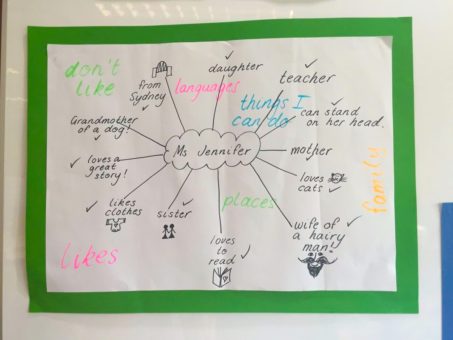 don't
like
from
Sydney
languages
daughter
teacher
things I
can do
can stand
on her head.
Grandmother
of a dog!
Ms Jennifer
mother
loves a
great
story!
loves
cats
family
likes
clothes
sister
places
wife of
a hairy
man!
loves
to
read
likes